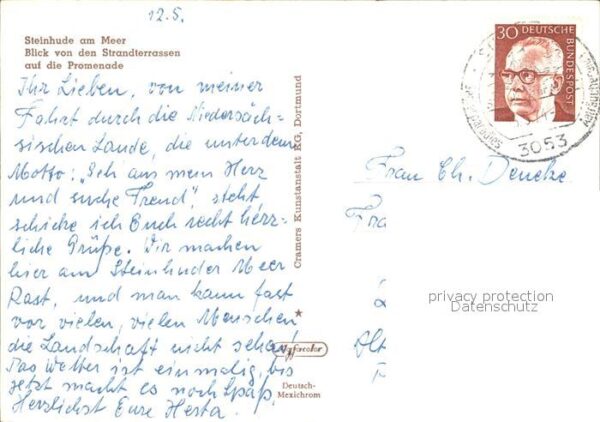 12.5.
Steinhude am Meer
Blick von den Strandterrassen
auf die Promenade
Ihr Lieben, von meiner
Fahrt durch die Niedersäch-
sischen Lande, die unter dem
Motto: „Geh aus mein Herz
und suche Freud", steht
schicke ich Euch recht herz-
liche Grüße. Wir machen
hier am Steinhuder Meer
Rast, und man kann fast
vor vielen, vielen Menschen
die Landschaft nicht sehen!
Das Wetter ist einmalig, bis
jetzt macht es noch Spaß.
Herzlichst Eure Herta.
Cramers Kunstanstalt KG, Dortmund
Deutsch-
Mexichrom
30 DEUTSCHE
BUNDESPOST
3053
Frau Ch. Deneke
Fra
Alt
privacy protection
Datenschutz